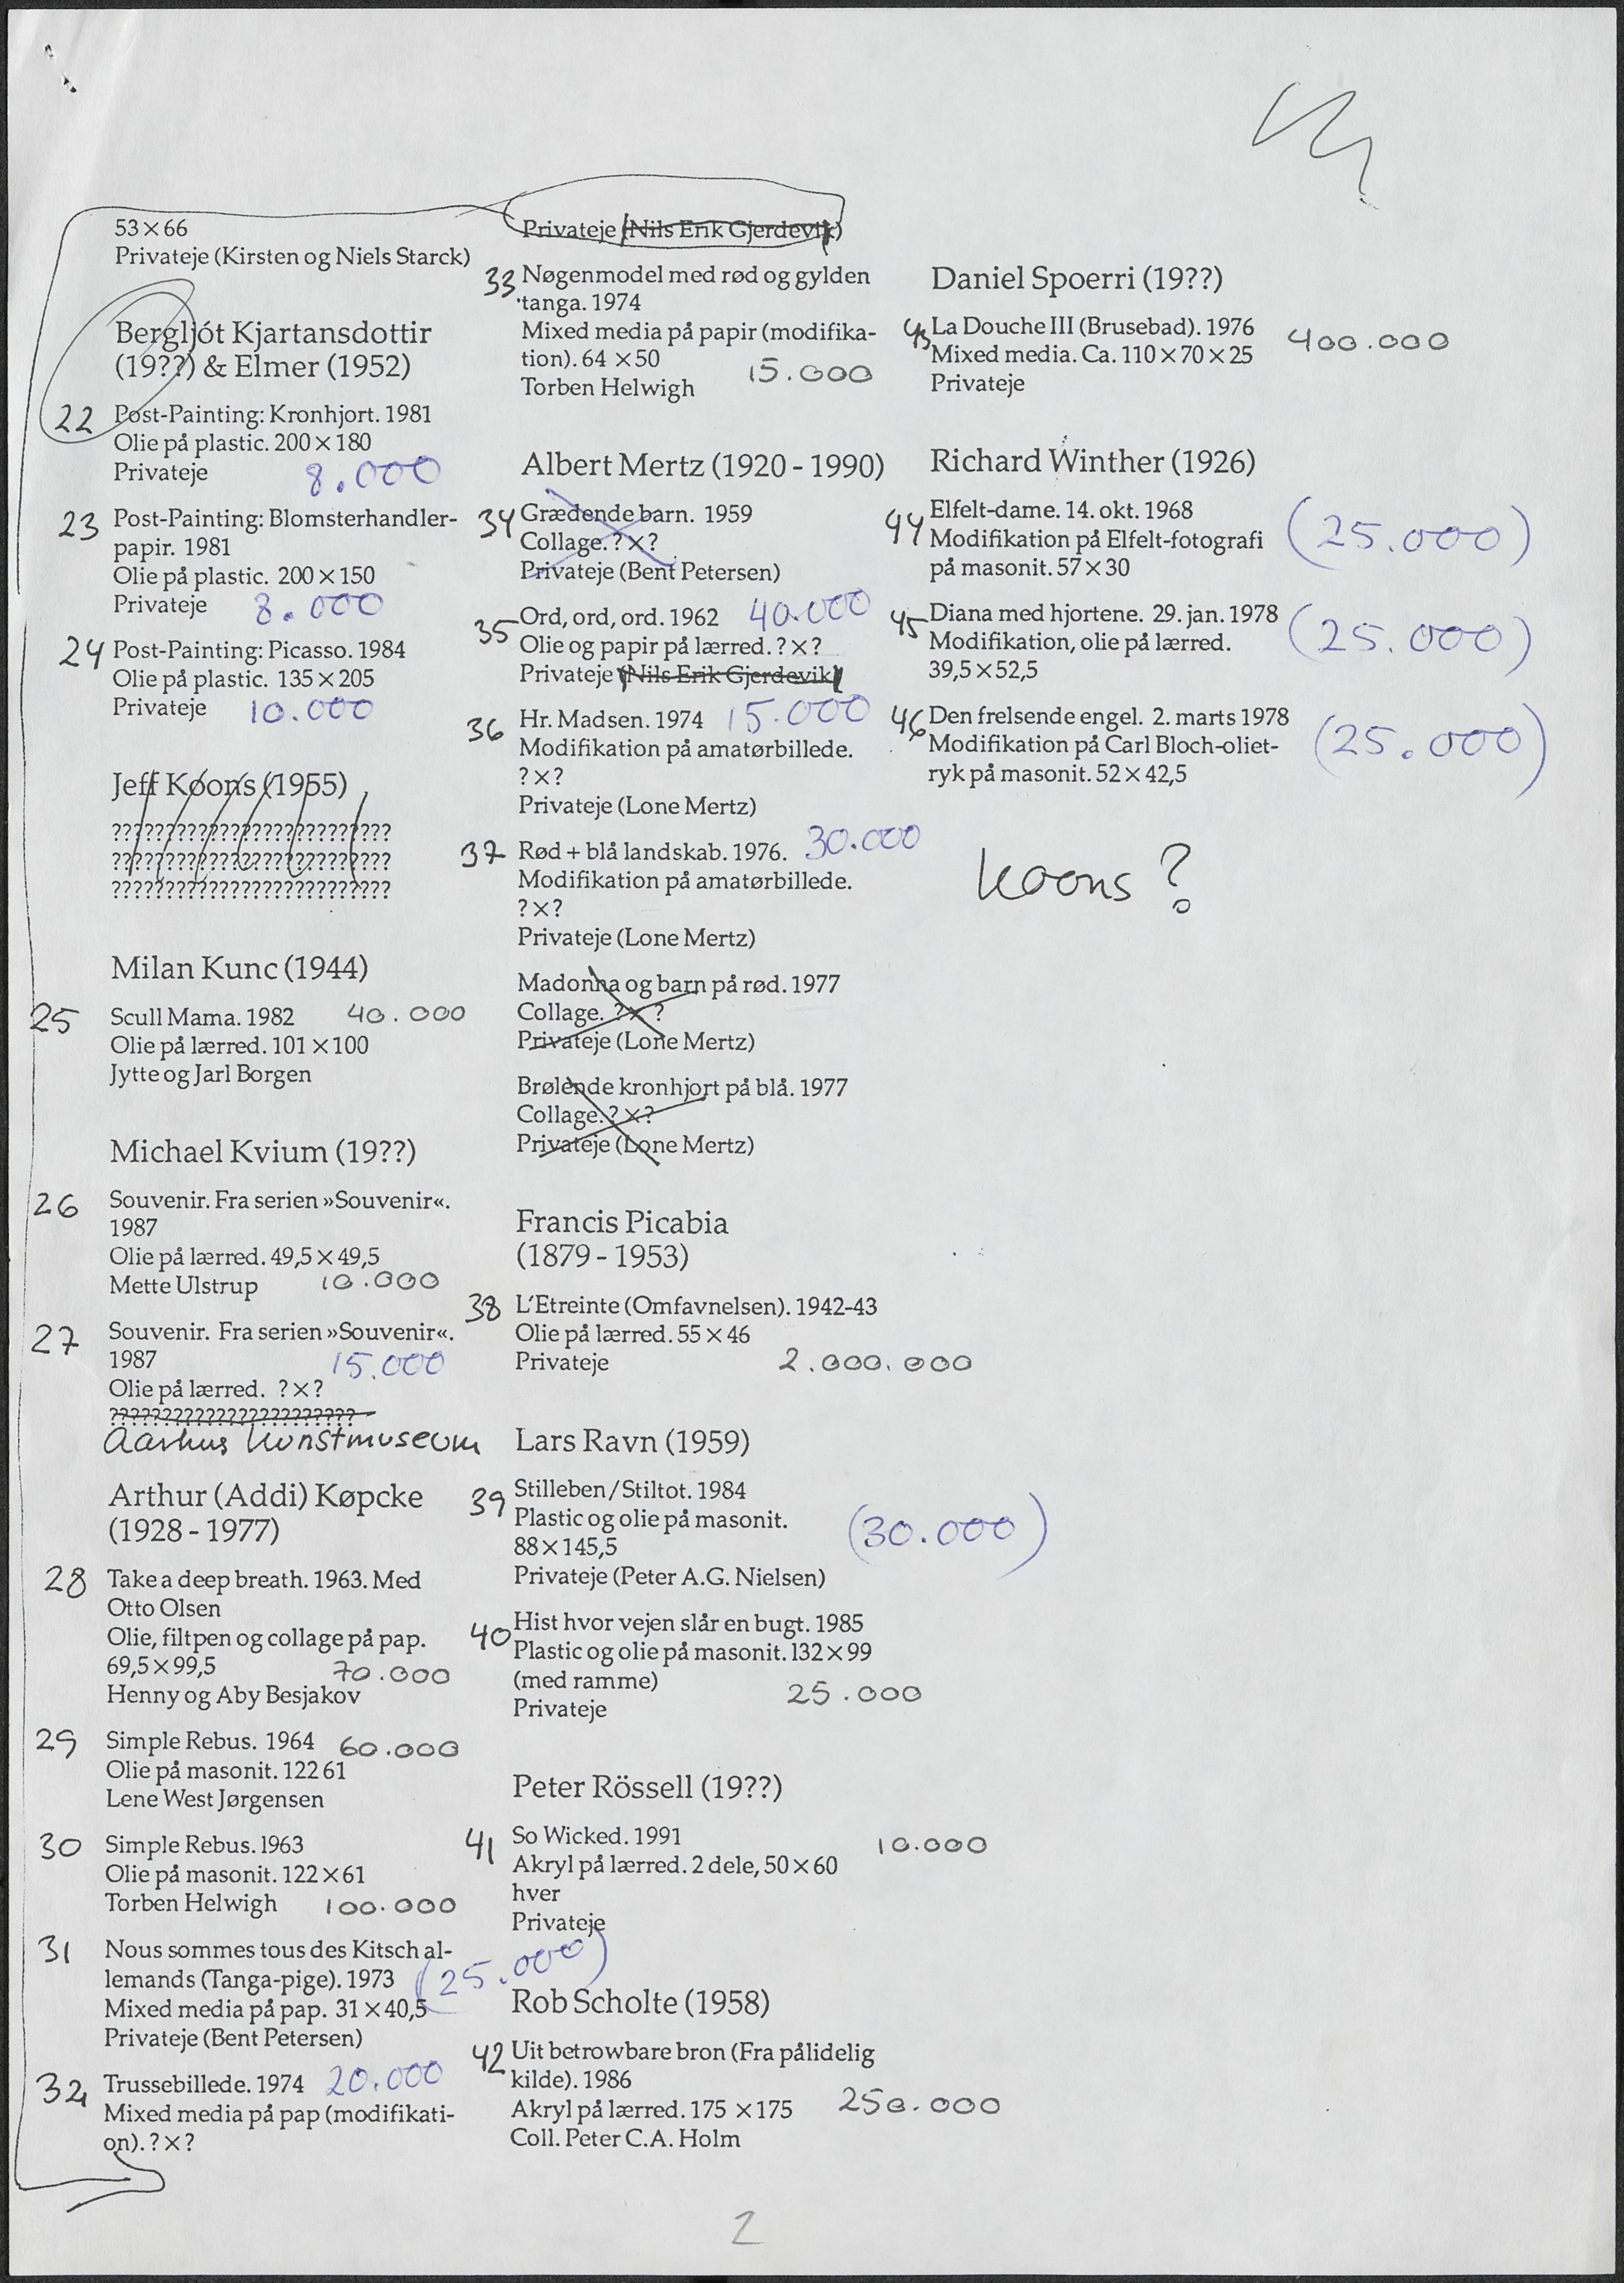 53 × 66
Privateje (Kirsten og Niels Starck)
Bergljót Kjartansdottir
(19??) & Elmer (1952)
22 Post-Painting: Kronhjort. 1981
Olie på plastic. 200 × 180
Privateje 8.000
23 Post-Painting: Blomsterhandler-
papir. 1981
Olie på plastic. 200 × 150
Privateje 8.000
24 Post-Painting: Picasso. 1984
Olie på plastic. 135 × 205
Privateje 10.000
Jeff Koons (1955)
??????????????????????????
??????????????????????????
??????????????????????????
Milan Kunc (1944)
25 Scull Mama. 1982 40.000
Olie på lærred. 101 × 100
Jytte og Jarl Borgen
Michael Kvium (19??)
26 Souvenir. Fra serien »Souvenir«.
1987
Olie på lærred. 49,5 × 49,5
Mette Ulstrup 10.000
27 Souvenir. Fra serien »Souvenir«.
1987 15.000
Olie på lærred. ? × ?
???????????????????????
Aarhus Kunstmuseum
Arthur (Addi) Køpcke
(1928 - 1977)
28 Take a deep breath. 1963. Med
Otto Olsen
Olie, filtpen og collage på pap.
69,5 × 99,5 70.000
Henny og Aby Besjakov
29 Simple Rebus. 1964 60.000
Olie på masonit. 122 61
Lene West Jørgensen
30 Simple Rebus. 1963
Olie på masonit. 122 × 61
Torben Helwigh 100.000
31 Nous sommes tous des Kitsch al-
lemands (Tanga-pige). 1973 (25.000)
Mixed media på pap. 31 × 40,5
Privateje (Bent Petersen)
32 Trussebillede. 1974 20.000
Mixed media på pap (modifikati-
on). ? × ?
Privateje (Nils Erik Gjerdevik)
33 Nøgenmodel med rød og gylden
tanga. 1974
Mixed media på papir (modifika-
tion). 64 × 50
Torben Helwigh 15.000
Albert Mertz (1920 - 1990)
34 Grædende barn. 1959
Collage. ? × ?
Privateje (Bent Petersen)
35 Ord, ord, ord. 1962 40.000
Olie og papir på lærred. ? × ?
Privateje (Nils Erik Gjerdevik)
36 Hr. Madsen. 1974 15.000
Modifikation på amatørbillede.
? × ?
Privateje (Lone Mertz)
37 Rød + blå landskab. 1976. 30.000
Modifikation på amatørbillede.
? × ?
Privateje (Lone Mertz)
Madonna og barn på rød. 1977
Collage. ? × ?
Privateje (Lone Mertz)
Brølende kronhjort på blå. 1977
Collage. ? × ?
Privateje (Lone Mertz)
Francis Picabia
(1879 - 1953)
38 L'Etreinte (Omfavnelsen). 1942-43
Olie på lærred. 55 × 46
Privateje 2.000.000
Lars Ravn (1959)
39 Stilleben/Stiltot. 1984
Plastic og olie på masonit.
88 × 145,5 (30.000)
Privateje (Peter A.G. Nielsen)
40 Hist hvor vejen slår en bugt. 1985
Plastic og olie på masonit. 132 × 99
(med ramme)
Privateje 25.000
Peter Rössell (19??)
41 So Wicked. 1991 10.000
Akryl på lærred. 2 dele, 50 × 60
hver
Privateje
Rob Scholte (1958)
42 Uit betrowbare bron (Fra pålidelig
kilde). 1986
Akryl på lærred. 175 × 175 250.000
Coll. Peter C.A. Holm
Daniel Spoerri (19??)
43 La Douche III (Brusebad). 1976 400.000
Mixed media. Ca. 110 × 70 × 25
Privateje
Richard Winther (1926)
44 Elfelt-dame. 14. okt. 1968
Modifikation på Elfelt-fotografi (25.000)
på masonit. 57 × 30
45 Diana med hjortene. 29. jan. 1978
Modifikation, olie på lærred. (25.000)
39,5 × 52,5
46 Den frelsende engel. 2. marts 1978
Modifikation på Carl Bloch-oliet- (25.000)
ryk på masonit. 52 × 42,5
Koons?
2